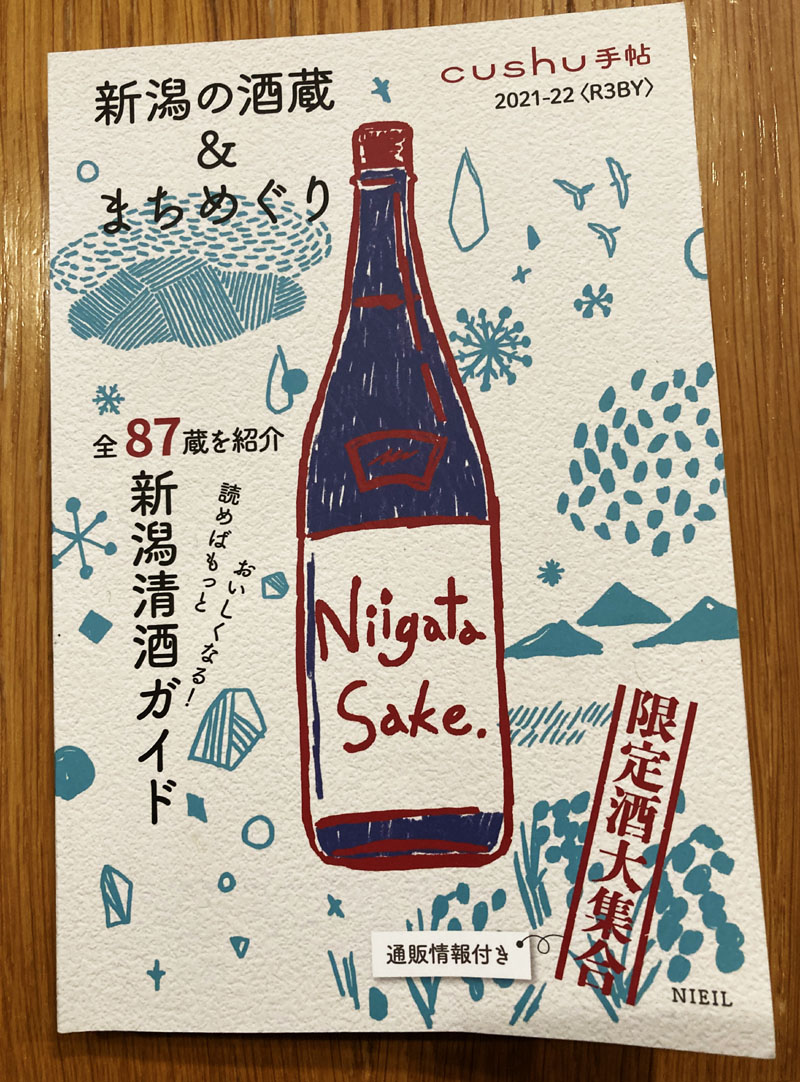 新潟の酒蔵
&
まちめぐり
cushu手帖
2021-22〈R3BY〉
全87蔵を紹介
新潟清酒ガイド
読めばもっと
おいしくなる!
Niigata
Sake.
限定酒大集合
通販情報付き
NIEIL